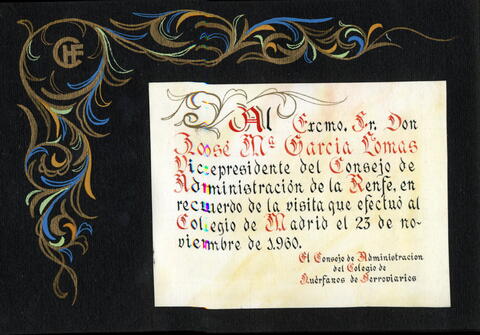 CHF
Al Excmo. Sr. Don
José Mª García Lomas
Vicepresidente del Consejo de
Administración de la Renfe, en
recuerdo de la visita que efectuó al
Colegio de Madrid el 23 de no-
viembre de 1.960.
El Consejo de Administracion
del Colegio de
Huérfanos de Ferroviarios